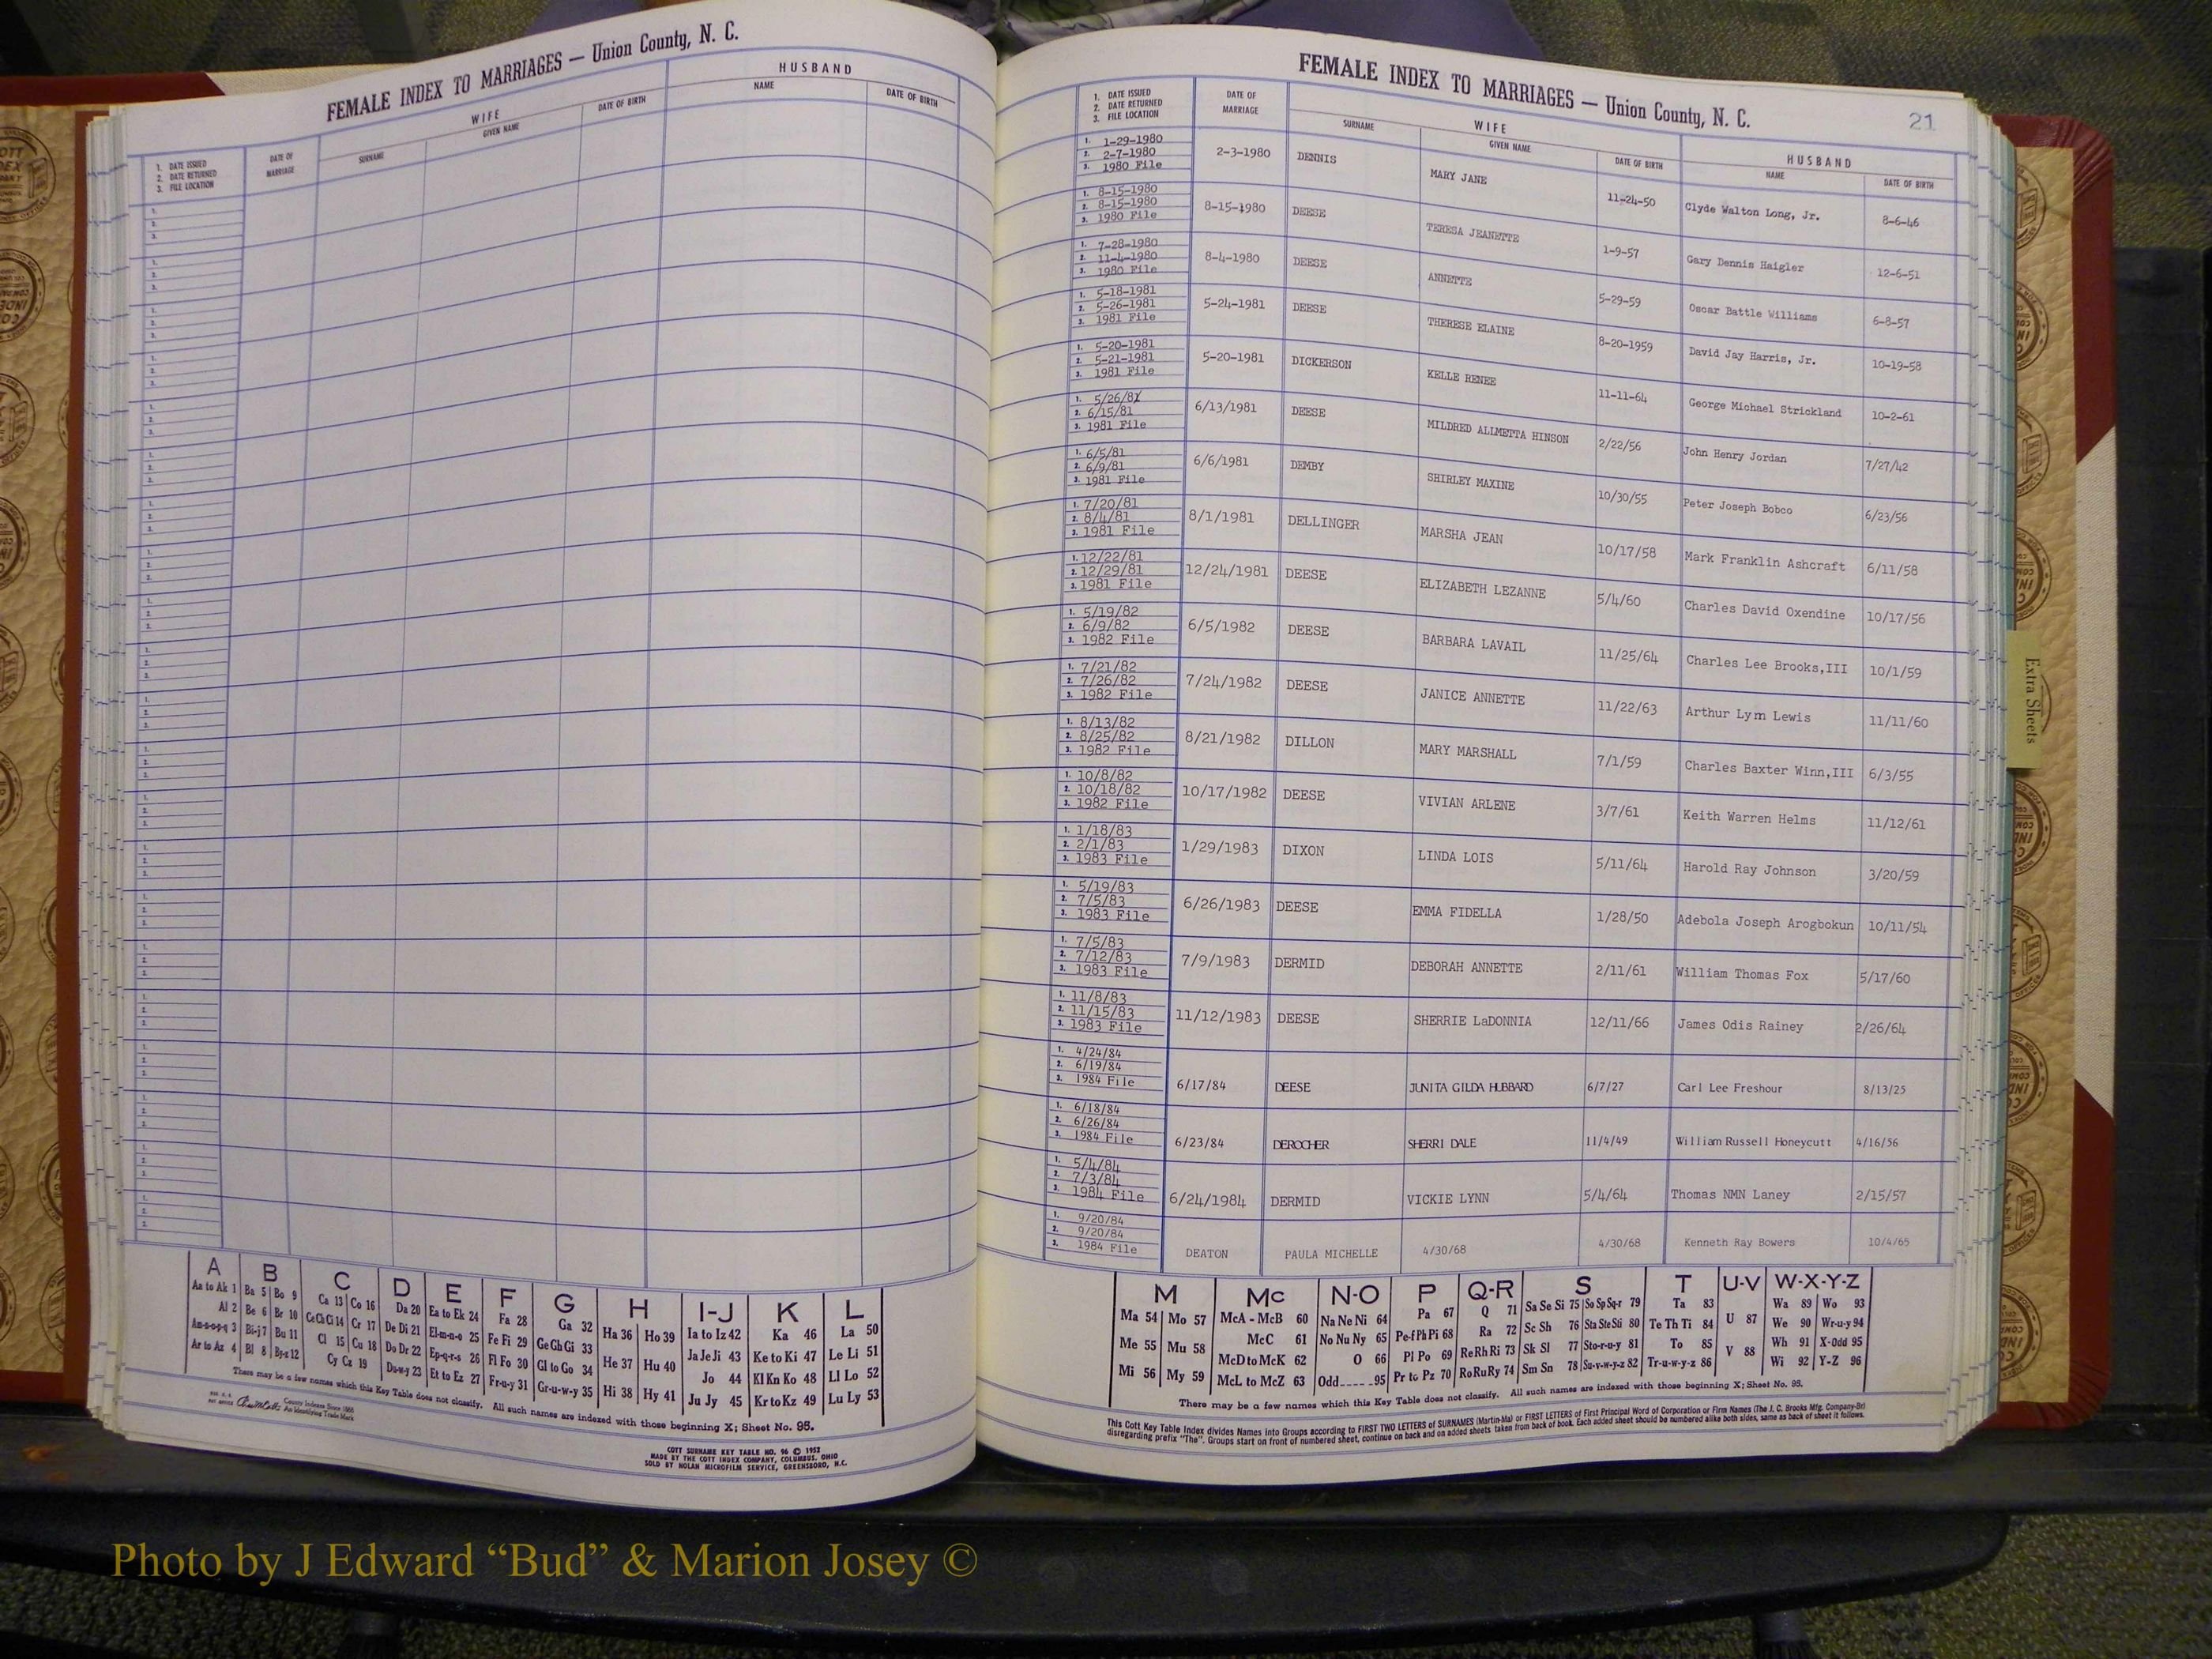 FEMALE INDEX TO MARRIAGES — Union County, N. C.
HUSBAND
WIFE
NAME
DATE OF BIRTH
1. DATE ISSUED
2. DATE RETURNED
3. FILE LOCATION
DATE OF MARRIAGE
SURNAME
GIVEN NAME
DATE OF BIRTH
A B C D E F G H I-J K L
Aa to Ak 1 Ba 5 Bo 9 Ca 13 Co 16 Da 20 Ea to Ek 24 Fa 28 Ga 32 Ha 36 Ho 39 Ia to Iz 42 Ka 46 La 50
Al 2 Be 6 Br 10 Ce Ch Ci 14 Cr 17 De Di 21 El-m-n-o 25 Fe Fi 29 Ge Gh Gi 33 Ja Je Ji 43 Ke to Ki 47 Le Li 51
Am-n-o-p-q 3 Bi-j 7 Bu 11 Cl 15 Cu 18 Do Dr 22 Ep-q-r-s 26 Fl Fo 30 Gl to Go 34 He 37 Hu 40 Jo 44 Kl Kn Ko 48 Ll Lo 52
Ar to Az 4 Bl 8 By-z 12 Cy Cz 19 Du-w-y 23 Et to Ez 27 Fr-u-y 31 Gr-u-w-y 35 Hi 38 Hy 41 Ju Jy 45 Kr to Kz 49 Lu Ly 53
There may be a few names which this Key Table does not classify. All such names are indexed with those beginning X; Sheet No. 95.
COTT SURNAME KEY TABLE NO. 96 © 1952
MADE BY THE COTT INDEX COMPANY, COLUMBUS, OHIO
SOLD BY NOLAN MICROFILM SERVICE, GREENSBORO, N.C.
FEMALE INDEX TO MARRIAGES — Union County, N. C.
21
1. DATE ISSUED
2. DATE RETURNED
3. FILE LOCATION
DATE OF MARRIAGE
WIFE
SURNAME
GIVEN NAME
DATE OF BIRTH
HUSBAND
NAME
DATE OF BIRTH
1. 1-29-1980
2. 2-7-1980
3. 1980 File
2-3-1980 DENNIS MARY JANE 11-24-50 Clyde Walton Long, Jr. 8-6-46
1. 8-15-1980
2. 8-15-1980
3. 1980 File
8-15-1980 DEESE TERESA JEANETTE 1-9-57 Gary Dennis Haigler 12-6-51
1. 7-28-1980
2. 11-4-1980
3. 1980 File
8-4-1980 DEESE ANNETTE 5-29-59 Oscar Battle Williams 6-8-57
1. 5-18-1981
2. 5-26-1981
3. 1981 File
5-24-1981 DEESE THERESE ELAINE 8-20-1959 David Jay Harris, Jr. 10-19-58
1. 5-20-1981
2. 5-21-1981
3. 1981 File
5-20-1981 DICKERSON KELLE RENEE 11-11-64 George Michael Strickland 10-2-61
1. 5/26/81
2. 6/15/81
3. 1981 File
6/13/1981 DEESE MILDRED ALLMETTA HINSON 2/22/56 John Henry Jordan 7/27/42
1. 6/5/81
2. 6/9/81
3. 1981 File
6/6/1981 DEMBY SHIRLEY MAXINE 10/30/55 Peter Joseph Bobco 6/23/56
1. 7/20/81
2. 8/4/81
3. 1981 File
8/1/1981 DELLINGER MARSHA JEAN 10/17/58 Mark Franklin Ashcraft 6/11/58
1. 12/22/81
2. 12/29/81
3. 1981 File
12/24/1981 DEESE ELIZABETH LEZANNE 5/4/60 Charles David Oxendine 10/17/56
1. 5/19/82
2. 6/9/82
3. 1982 File
6/5/1982 DEESE BARBARA LAVAIL 11/25/64 Charles Lee Brooks,III 10/1/59
1. 7/21/82
2. 7/26/82
3. 1982 File
7/24/1982 DEESE JANICE ANNETTE 11/22/63 Arthur Lym Lewis 11/11/60
1. 8/13/82
2. 8/25/82
3. 1982 File
8/21/1982 DILLON MARY MARSHALL 7/1/59 Charles Baxter Winn,III 6/3/55
1. 10/8/82
2. 10/18/82
3. 1982 File
10/17/1982 DEESE VIVIAN ARLENE 3/7/61 Keith Warren Helms 11/12/61
1. 1/18/83
2. 2/1/83
3. 1983 File
1/29/1983 DIXON LINDA LOIS 5/11/64 Harold Ray Johnson 3/20/59
1. 5/19/83
2. 7/5/83
3. 1983 File
6/26/1983 DEESE EMMA FIDELLA 1/28/50 Adebola Joseph Arogbokun 10/11/54
1. 7/5/83
2. 7/12/83
3. 1983 File
7/9/1983 DERMID DEBORAH ANNETTE 2/11/61 William Thomas Fox 5/17/60
1. 11/8/83
2. 11/15/83
3. 1983 File
11/12/1983 DEESE SHERRIE LaDONNIA 12/11/66 James Odis Rainey 2/26/64
1. 4/24/84
2. 6/19/84
3. 1984 File
6/17/84 DEESE JUNITA GILDA HUBBARD 6/7/27 Carl Lee Freshour 8/13/25
1. 6/18/84
2. 6/26/84
3. 1984 File
6/23/84 DEROCHER SHERRI DALE 11/4/49 William Russell Honeycutt 4/16/56
1. 5/4/84
2. 7/3/84
3. 1984 File
6/24/1984 DERMID VICKIE LYNN 5/4/64 Thomas NMN Laney 2/15/57
1. 9/20/84
2. 9/20/84
3. 1984 File
DEATON PAULA MICHELLE 4/30/68 4/30/68 Kenneth Ray Bowers 10/4/65
M Mc N-O P Q-R S T U-V W-X-Y-Z
Ma 54 Mo 57 McA - McB 60 Na Ne Ni 64 Pa 67 Q 71 Sa Se Si 75 So Sp Sq-r 79 Ta 83 U 87 Wa 89 Wo 93
Me 55 Mu 58 McC 61 No Nu Ny 65 Pe-f Ph Pi 68 Ra 72 Sc Sh 76 Sta Ste Sti 80 Te Th Ti 84 We 90 Wr-u-y 94
McD to McK 62 O 66 Pl Po 69 Re Rh Ri 73 Sk Sl 77 Sto-r-u-y 81 To 85 V 88 Wh 91 X-Odd 95
Mi 56 My 59 McL to McZ 63 Odd 95 Pr to Pz 70 Ro Ru Ry 74 Sm Sn 78 Su-v-w-y-z 82 Tr-u-w-y-z 86 Wi 92 Y-Z 96
There may be a few names which this Key Table does not classify. All such names are indexed with those beginning X; Sheet No. 95.
This Cott Key Table Index divides Names into Groups according to FIRST TWO LETTERS of SURNAMES (Martin-Ma) or FIRST LETTERS of First Principal Word of Corporation or Firm Names (The J. C. Brooks Mfg. Company-Br)
disregarding prefix "The". Groups start on front of numbered sheet, continue on back and on added sheets taken from back of book. Each added sheet should be numbered alike both sides, same as back of sheet it follows.
Extra Sheets
Photo by J Edward “Bud” & Marion Josey ©